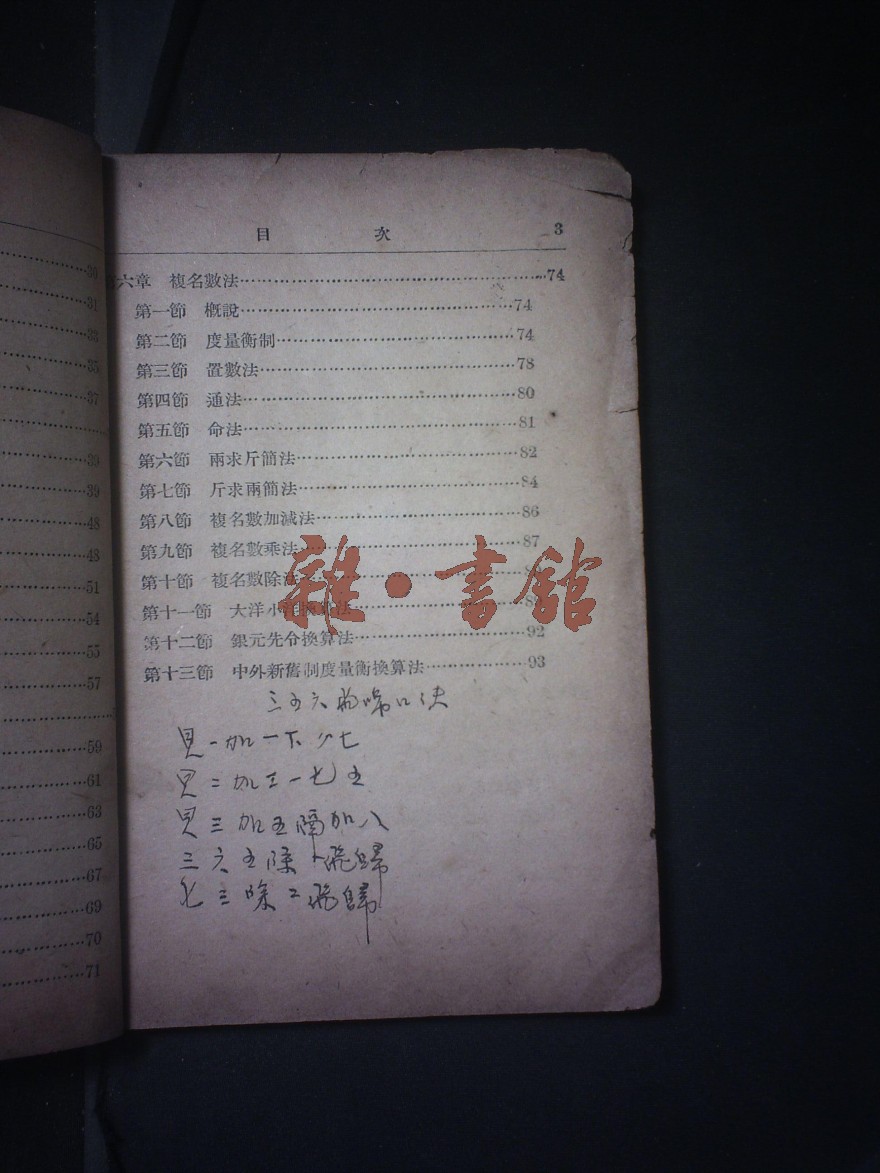 目 次 3
六章 複名數法 74
第一節 概說 74
第二節 度量衡制 74
第三節 置數法 78
第四節 通法 80
第五節 命法 81
第六節 兩求斤簡法 82
第七節 斤求兩簡法 84
第八節 複名數加減法 86
第九節 複名數乘法 87
第十節 複名數除法
第十一節 大洋小洋換算法
第十二節 銀元先令換算法 92
第十三節 中外新舊制度量衡換算法 93
三五六飛歸口訣
見一加一下
見二加三一七五
見三加五隔加八
三六五除 飛歸
七三除二飛歸
雜·書館
30
31
33
35
37
39
39
48
48
51
54
55
57
59
61
63
65
67
69
70
71